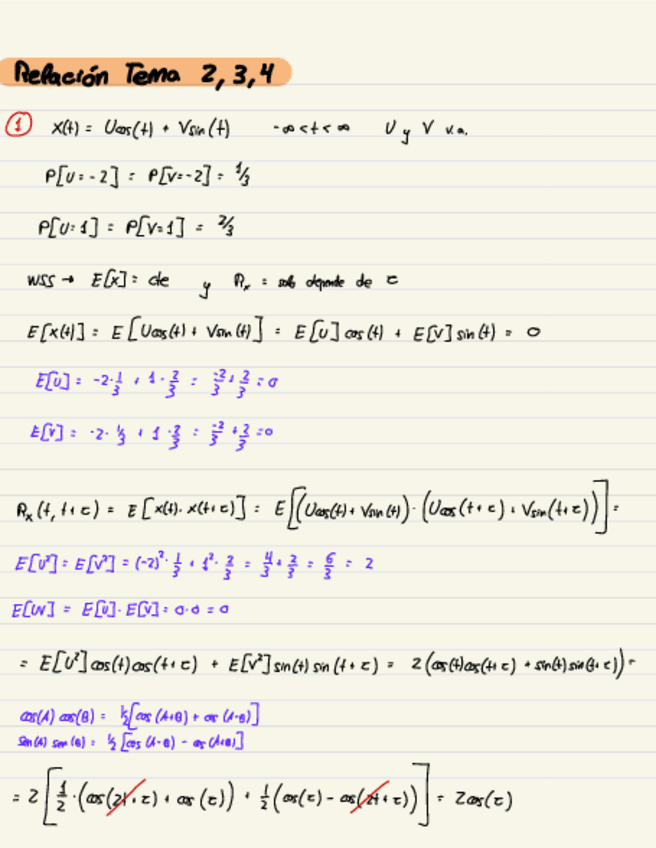 Relación Tema 2, 3, 4
① X(t) = Ucos(t) + Vsin(t) -∞<t<∞ U y V v.a.
P[U=-2] = P[V=-2] = 1/3
P[U=1] = P[V=1] = 2/3
WSS → E[X] = cte y Rx = solo depende de τ
E[X(t)] = E[Ucos(t) + Vsin(t)] = E[U] cos(t) + E[V] sin(t) = 0
E[U] = -2·1/3 + 1·2/3 = -2/3 + 2/3 = 0
E[V] = -2·1/3 + 1·2/3 = -2/3 + 2/3 = 0
Rx(t, t+τ) = E[X(t)·X(t+τ)] = E[(Ucos(t)+Vsin(t))·(Ucos(t+τ)+Vsin(t+τ))] =
E[U²] = E[V²] = (-2)²·1/3 + 1²·2/3 = 4/3 + 2/3 = 6/3 = 2
E[UV] = E[U]·E[V] = 0·0 = 0
= E[U²]cos(t)cos(t+τ) + E[V²]sin(t)sin(t+τ) = 2(cos(t)cos(t+τ) + sin(t)sin(t+τ)) =
cos(A) cos(B) = 1/2[cos(A+B) + cos(A-B)]
sen(A) sen(B) = 1/2[cos(A-B) - cos(A+B)]
= 2[1/2·(cos(2t+τ) + cos(τ)) + 1/2(cos(τ) - cos(2t+τ))] = 2cos(τ)